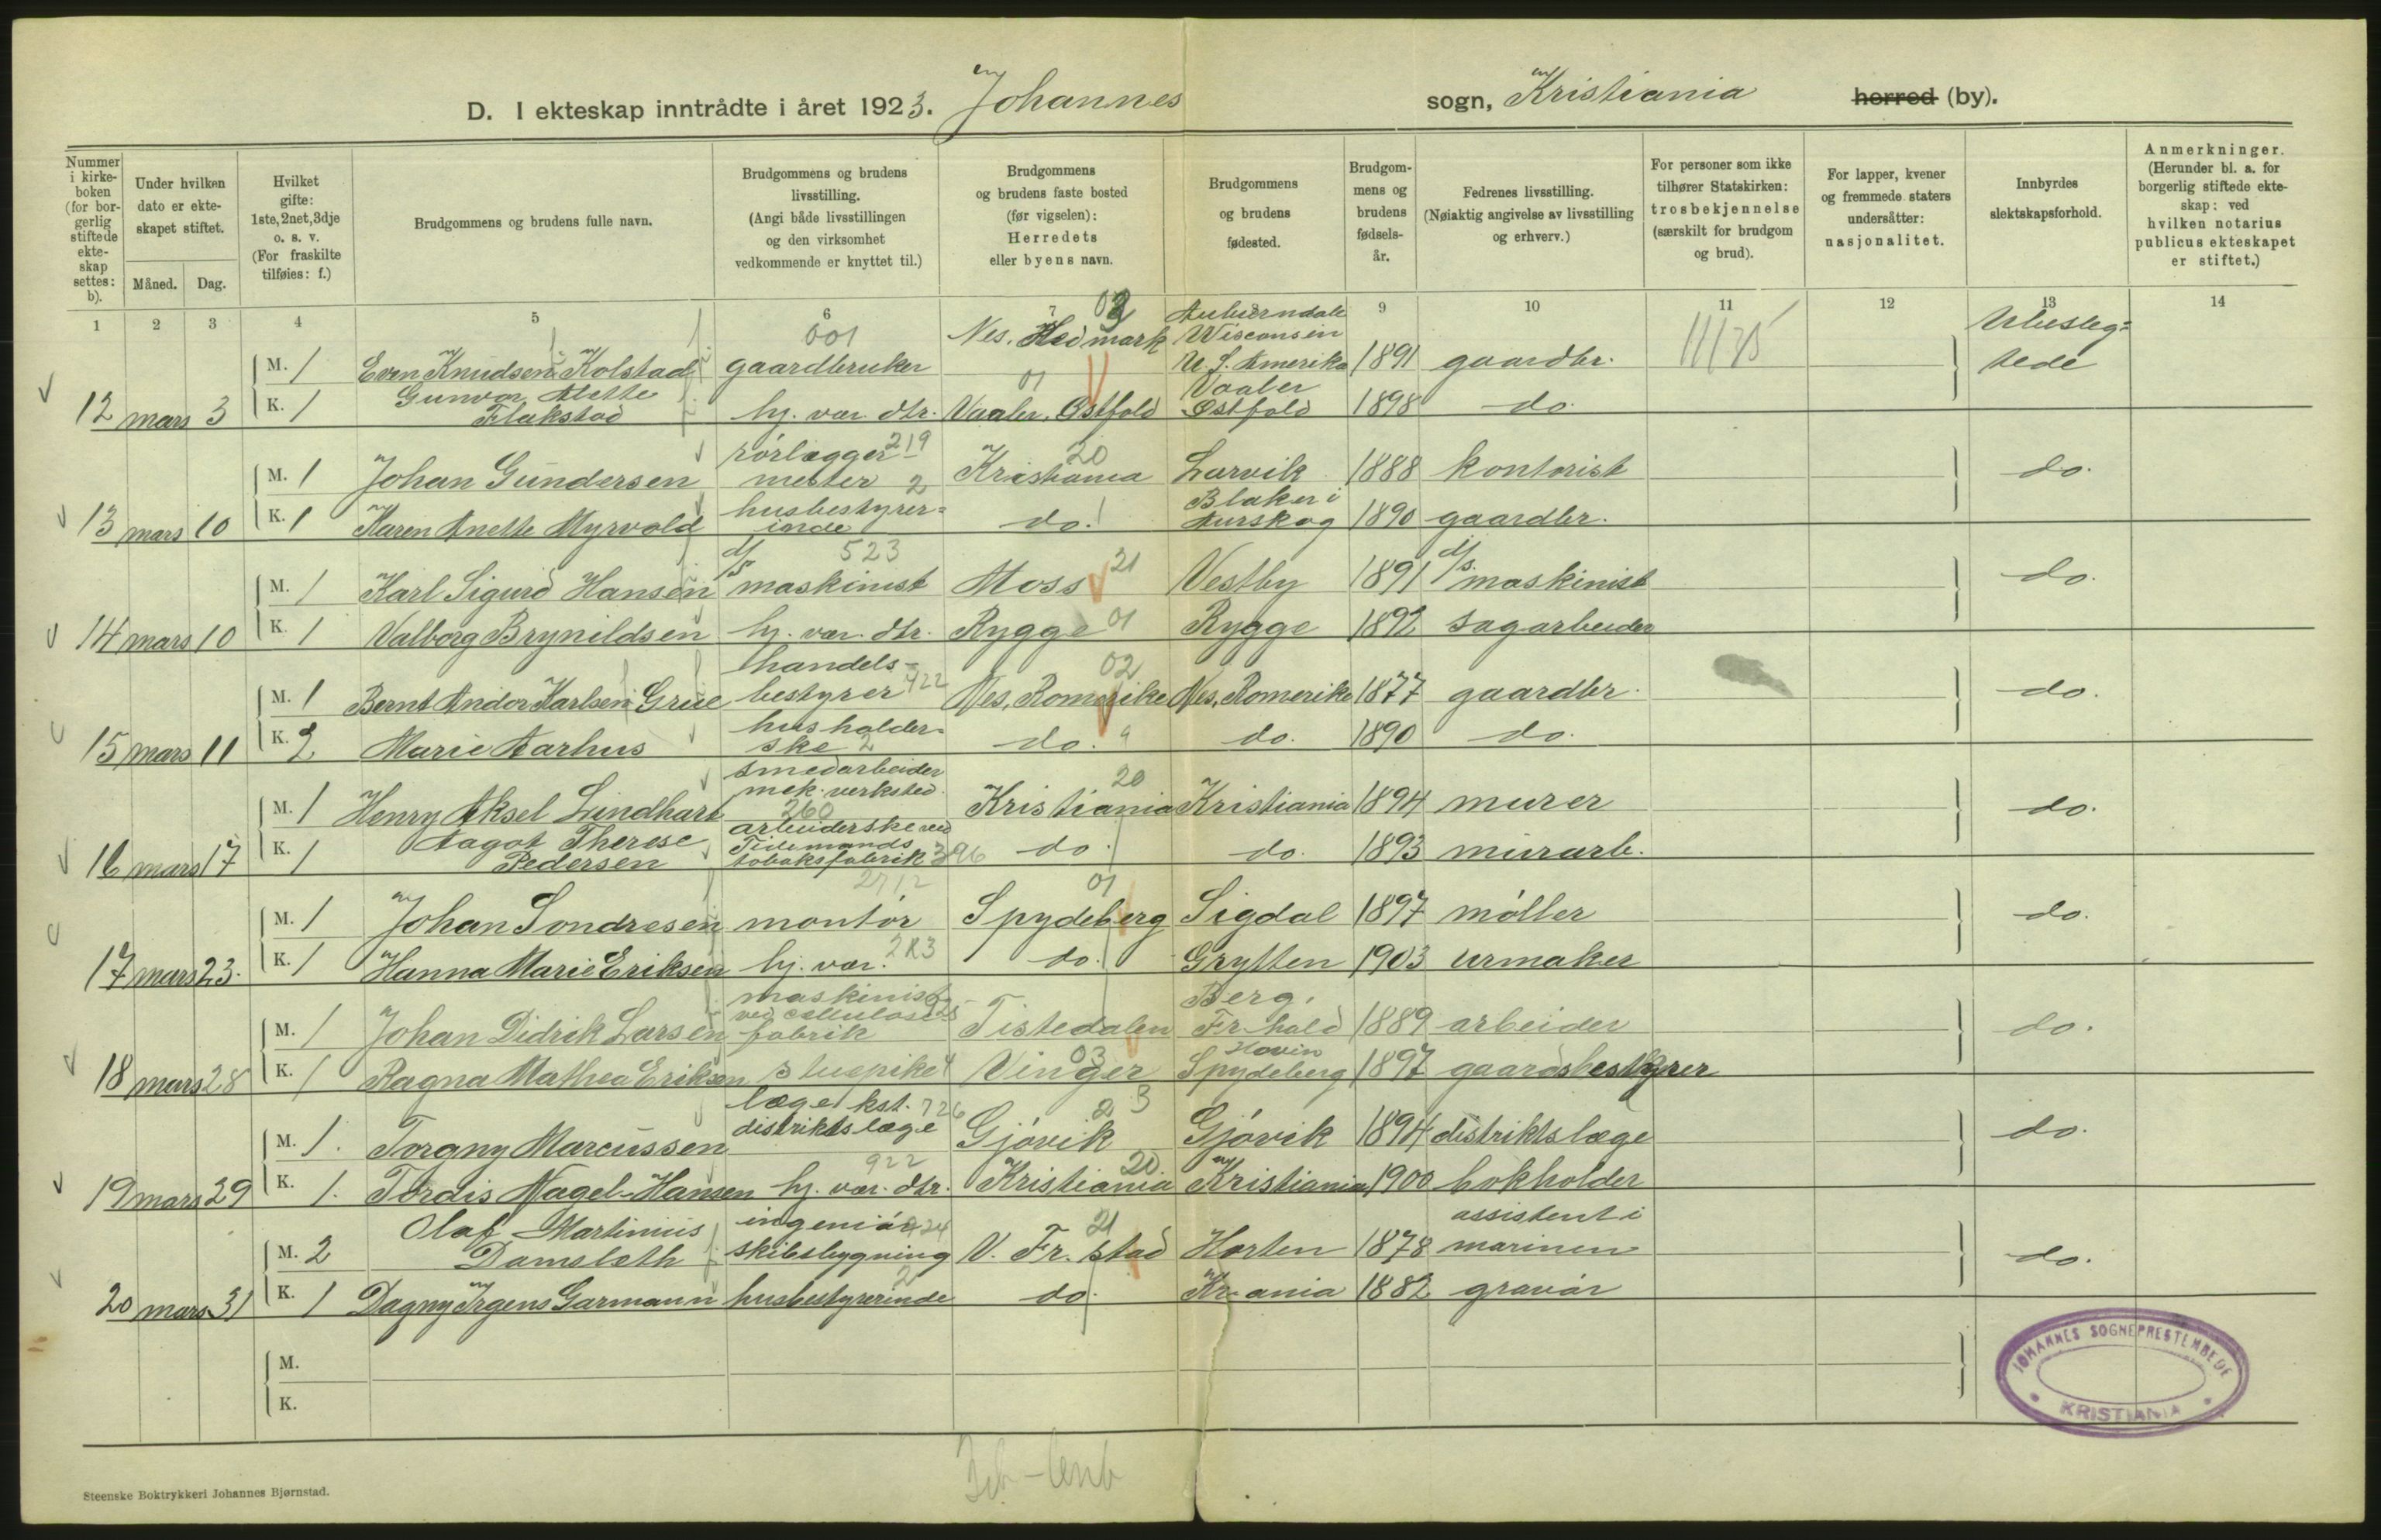 D. I ekteskap inntrådte i året 1923. Johannes sogn, Kristiania herred (by).
Nummer i kirkeboken (for borgerlig stiftede ekteskap settes: b).
Under hvilken dato er ekteskapet stiftet.
Måned. Dag.
Hvilket gifte: 1ste, 2net, 3dje o. s. v. (For fraskilte tilføies: f.)
Brudgommens og brudens fulle navn.
Brudgommens og brudens livsstilling. (Angi både livsstillingen og den virksomhet vedkommende er knyttet til.)
Brudgommens og brudens faste bosted (før vigselen): Herredets eller byens navn.
Brudgommens og brudens fødested.
Brudgommens og brudens fødselsår.
Fedrenes livsstilling. (Nøiaktig angivelse av livsstilling og erhverv.)
For personer som ikke tilhører Statskirken: trosbekjennelse (særskilt for brudgom og brud).
For lapper, kvener og fremmede staters undersåtter: nasjonalitet.
Innbyrdes slektskapsforhold.
Anmerkninger. (Herunder bl. a. for borgerlig stiftede ekteskap: ved hvilken notarius publicus ekteskapet er stiftet.)
1 2 3 4 5 6 7 9 10 11 12 13 14
M. 1 Even Knudsen Kolstad 001 gaardbruker Nes, Hedmark Auburndale Wisconsin U. S. Amerika 1891 gaardbr. 11175 Ubesleg=tede
12 mars 3 K. 1 Gunvor Alette Flakstad hj. vær. dtr. Vaaler, Østfold 01 Vaaler Østfold 1898 do.
M. 1 Johan Gundersen rörlægger- mester 219 Kristiania 20 Larvik 1888 kontorist do.
13 mars 10 K. 1 Karen Anette Myrvold husbestyrer=inde 2 do. Blaker i Aurskog 1890 gaardbr.
M. 1 Karl Sigurd Hansen d/s maskinist 523 Moss 21 Vestby 1891 d/s. maskinist do.
14 mars 10 K. 1 Valborg Brynildsen hj. vær. dtr. Rygge 01 Rygge 1892 sagarbeider
M. 1 Bernt Andor Karlsen Grue handels-bestyrer 422 Nes, Romerike 02 Nes, Romerike 1877 gaardbr. do.
15 mars 11 K. 2 Marie Aarhus husholder-ske 2 do. do. 1890 do.
M. 1 Henry Aksel Lindhart smedarbeider mek. verksted. 260 Kristiania 20 Kristiania 1894 murer do.
16 mars 17 K. 1 Aagot Therese Pedersen arbeiderske ved Tidemands tobaksfabrik 396 do. do. 1893 murarb.
M. 1 Johan Sondresen montör Spydeberg 01 Sigdal 1897 möller do.
17 mars 23. K. 1 Hanna Marie Eriksen hj. vær. do. Grytten 1903 urmaker
M. 1 Johan Didrik Larsen maskinist ved cellulose fabrik Tistedalen Berg, Fr.hald 1889 arbeider do.
18 mars 28 K. 1 Ragna Mathea Eriksen stuepike 4 Vinger 03 Hovin Spydeberg 1897 gaardsbestyrer
M. 1. Torgny Marcussen læge kst. distriktslæge 726 Gjövik 23 Gjövik 1894 distriktslæge do.
19 mars 29 K. 1. Tordis Nagel-Hansen hj. vær. dtr. 922 Kristiania 20 Kristiania 1900 bokholder
M. 2 Olaf Martinius Damsleth ingeniör skibsbygning V. Fr.stad 21 Horten 1878 assistent i marinen do.
20 mars 31 K. 1 Dagny Irgens Garmann husbestyrerinde 2 do. Kr.ania 1882 gravör
M.
K.
JOHANNES SOGNEPRESTEMBEDE KRISTIANIA
Steenske Boktrykkeri Johannes Bjørnstad.